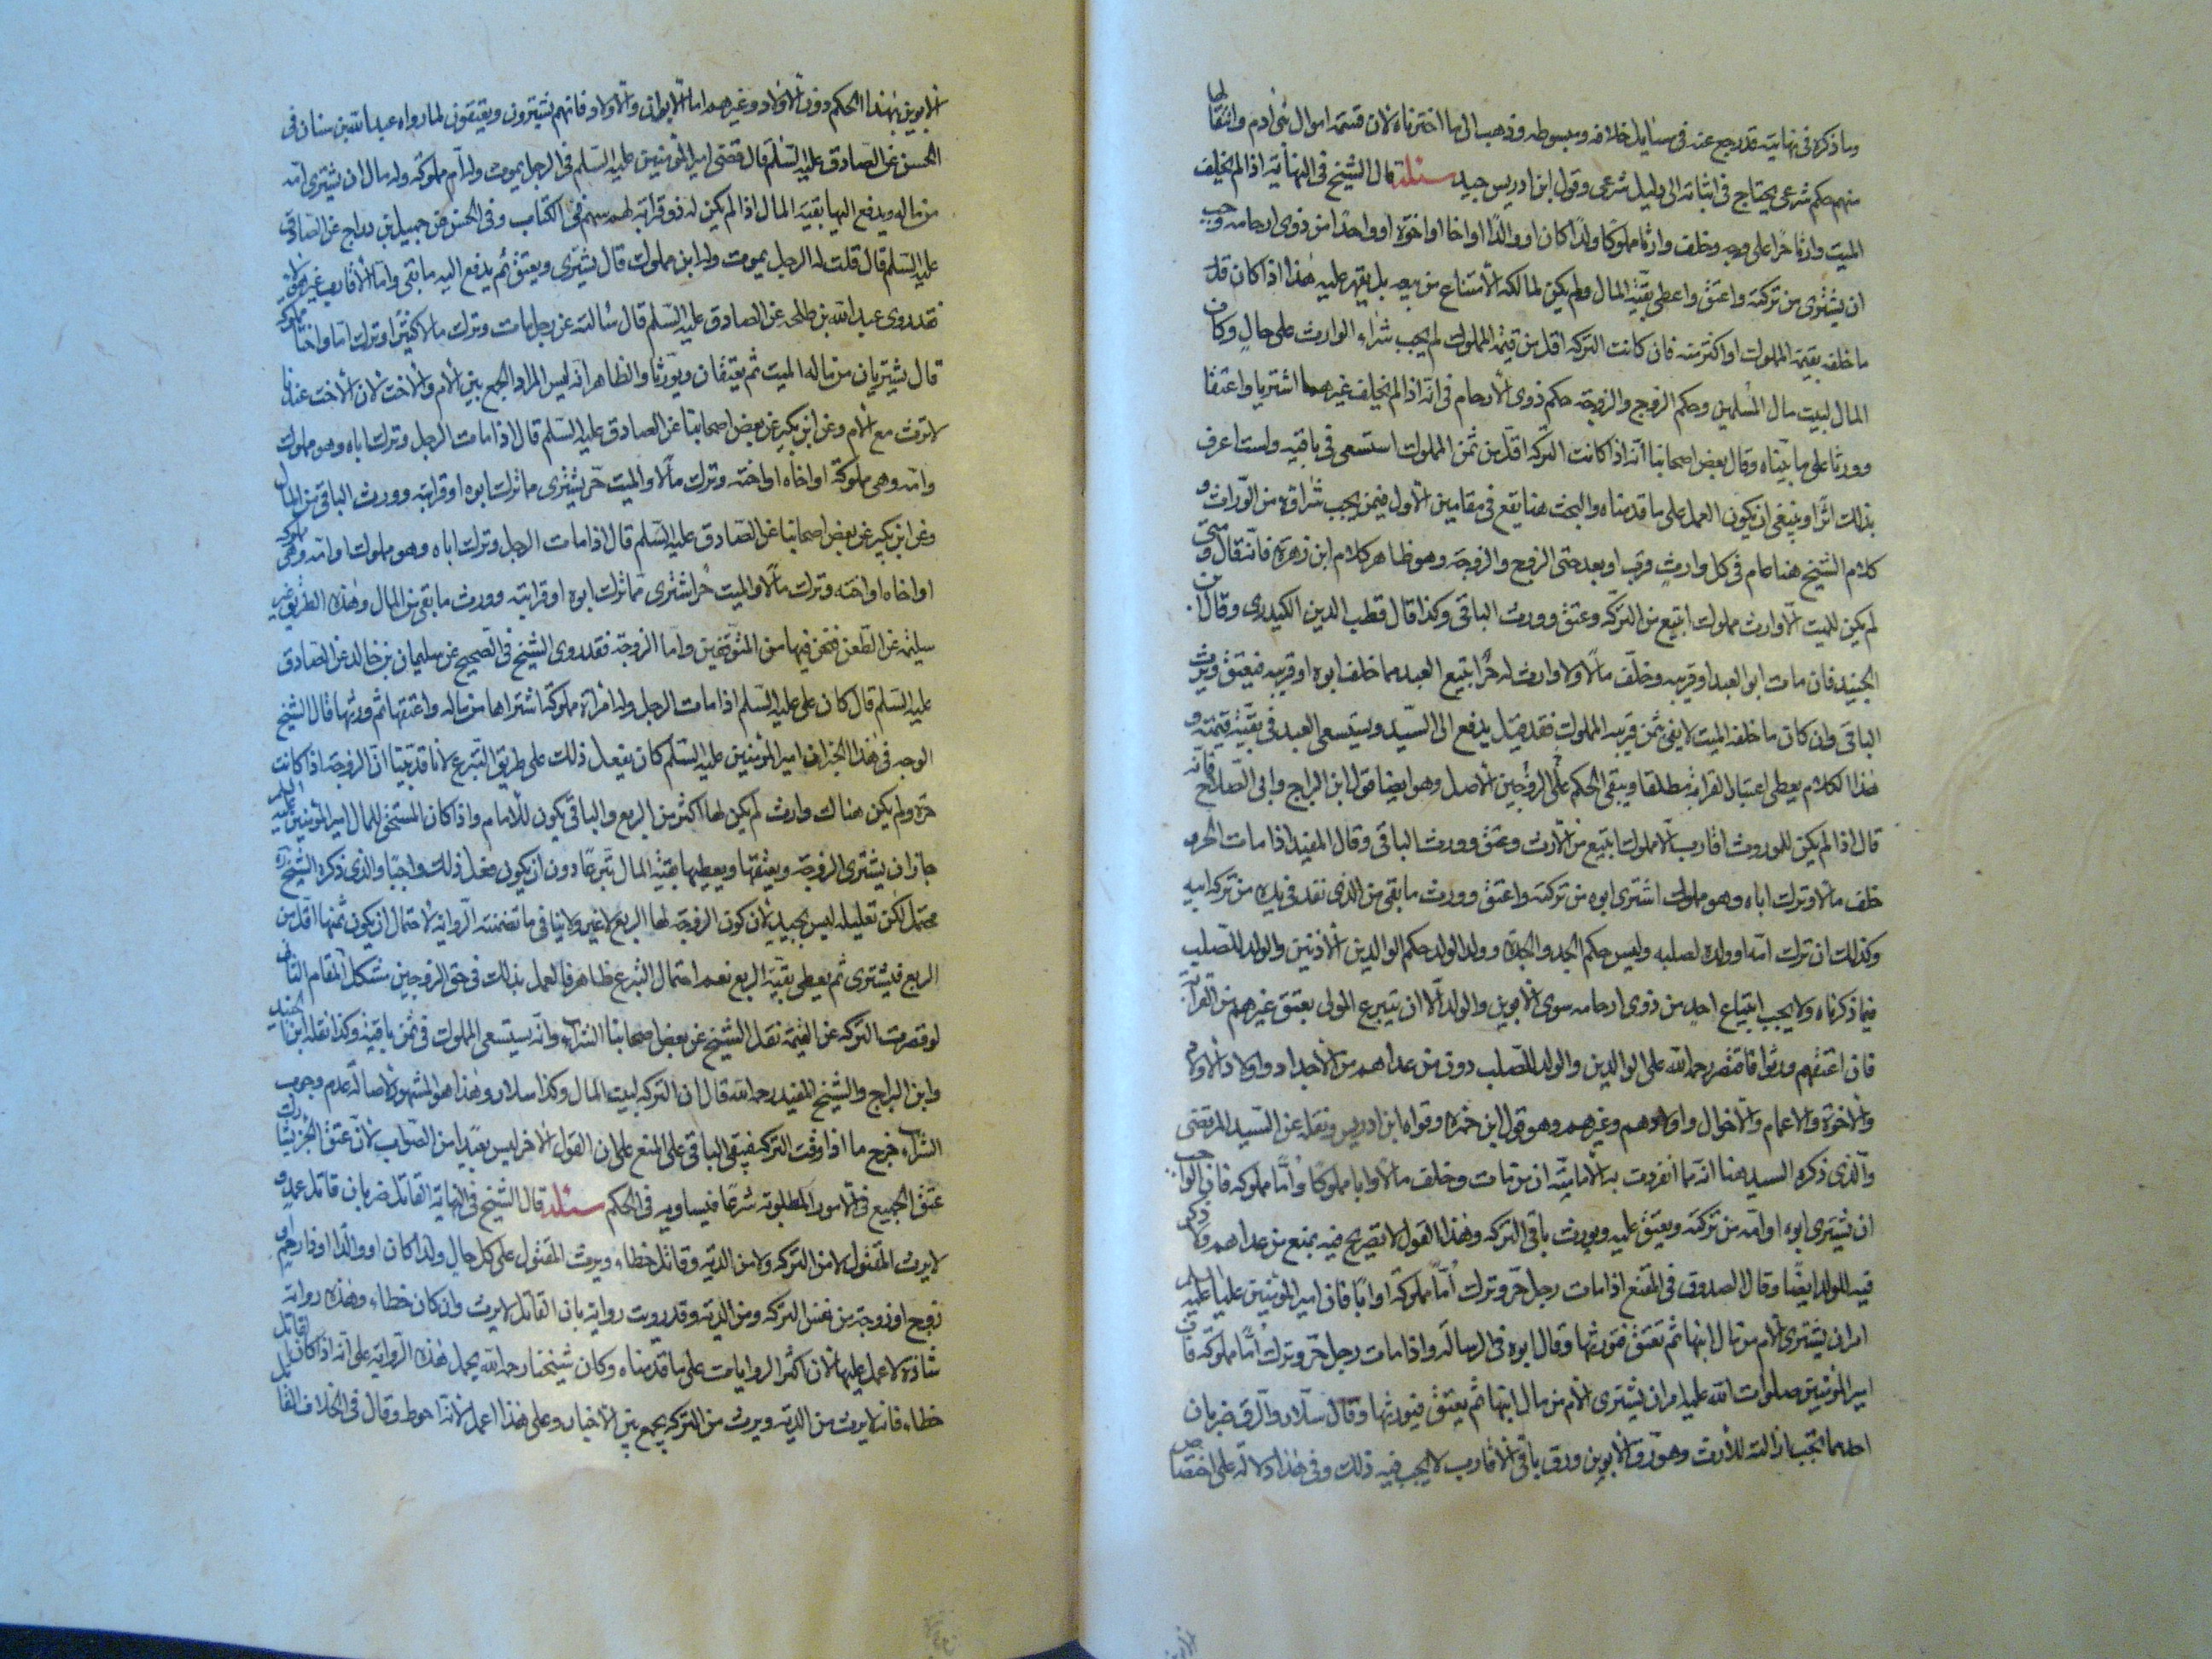 وما ذكره في نهايته قد رجع عنه في مسايل خلافه ومبسوطه وذهب الى ما اخترناه لان قسمة اموال بني ادم وانتقالها
منهم حكم شرعي يحتاج في اثباته الى دليل شرعي وقول ابن ادريس جيد مسئلة قال الشيخ في النهاية اذا لم يخلف
الميت وارثا حرا على وجه وخلف وارثا مملوكا ولدا كان او والدا او اخا او اخوة او واحدا من ذوي ارحامه وجب
ان يشترى من تركته واعتق واعطى بقية المال ولم يكن لمالكه الامتناع من بيعه بل يقهر عليه هذا اذا كان قدر
ما خلفه بقيمة المملوك او اكثر منه فان كانت التركة اقل من قيمة المملوك لم يجب شراء الوارث على حال وكان
المال لبيت مال المسلمين وحكم الزوج والزوجة حكم ذوي الارحام في انه اذا لم يخلف غيرهما اشتريا واعتقا
وورثا على ما بيناه وقال بعض اصحابنا انه اذا كانت التركة اقل من ثمن المملوك استسعى في باقيه ولست اعرف
بذلك اثرا وينبغي ان يكون العمل على ما قدمناه والبحث هنا يقع في مقامين الاول فيمن يجب شراؤه من الوراث و
كلام الشيخ هنا عام في كل وارث قرب او بعد حتى الزوج والزوجة وهو ظاهر كلام ابن زهرة فانه قال ومتى
لم يكن للميت الا وارث مملوك ابتيع من التركة وعتق وورث الباقي وكذا قال قطب الدين الكيدري وقال ابن
الجنيد فان مات ابو العبد او قريبه وخلف مالا ولا وارث له حر ابتيع العبد مما خلف ابوه او قريبه فيعتق ويرث
الباقي وان كان ما خلفه الميت لا يفي بثمن قريبه المملوك فقد قيل يدفع الى السيد ويستسعى العبد في بقية قيمته و
هذا الكلام يعطي اعتبار القرابة مطلقا ويبقى الحكم في الزوجين على الاصل وهو ايضا قول ابن البراج وابي الصلاح فانه
قال اذا لم يكن للموروث اقارب الا مملوك ابتيع من الارث وعتق وورث الباقي وقال المفيد اذا مات الحر و
خلف مالا وترك اباه وهو مملوك اشترى ابوه من تركته واعتق وورث ما بقي من الذي نقد في يده من تركة ابنه
وكذلك ان ترك امه او ولده لصلبه وليس حكم الجد والجدة وولد الولد حكم الوالدين الادنين والولد للصلب
فيما ذكرناه ولا يجب ابتياع احد من ذوي ارحامه سوى الابوين والولد الا ان يتبرع المولى بعتق غيرهم من القرابة
فان اعتقهم ورثوا فاقتصر رحمه الله على الوالدين والولد للصلب دون من عداهم من الاجداد واولاد الاولاد
والاخوة والاعمام والاخوال واولادهم وغيرهم وهو قول ابن حمزة وقواه ابن ادريس ونقله عن السيد المرتضى
والذي ذكره السيد هنا انه مما انفردت به الامامية ان من مات وخلف مالا وابا مملوكا واما مملوكة فان الواجب
ان يشترى ابوه او امه من تركته ويعتق عليه ويورث باقي التركة وهذا القول لا تصريح فيه بمنع من عداهم ولا ذكر
فيه للولد ايضا وقال الصدوق في المقنع اذا مات رجل حر وترك اما مملوكة او ابا فان امير المؤمنين عليا عليه السلم
امر ان يشترى الام من مال ابنها ثم تعتق فتورثها وقال ابوه في الرسالة واذا مات رجل حر وترك اما مملوكة فان
امير المؤمنين صلوات الله عليه امر ان يشترى الام من مال ابنها ثم يعتق فيورثها وقال سلار والرق ضربان
احدهما تجب ازالته للارث وهو رق الابوين ورق باقي الاقارب لا يجب فيه ذلك وفي هذا دلالة على اختصاص
الابوين بهذا الحكم دون الاولاد وغيرهم اما الابوان والاولاد فانهم يشترون ويعتقون لما رواه عبد الله بن سنان في
الحسن عن الصادق عليه السلم قال قضى امير المؤمنين عليه السلم في الرجل يموت وله ام مملوكة وله مال ان يشترى امه
من ماله ويدفع اليها بقية المال اذا لم يكن له ذو قرابة لهم سهم في الكتاب وفي الحسن عن جميل بن دراج عن الصادق
عليه السلم قال قلت له الرجل يموت وله ابن مملوك قال يشترى ويعتق ثم يدفع اليه ما بقي واما الاقارب غير هؤلاء
فقد روى عبد الله بن طلحة عن الصادق عليه السلم قال سالته عن رجل مات وترك مالا كثيرا وترك اما واختا مملوكة
قال يشتريان من مال الميت ثم يعتقان ويورثا والظاهر انه ليس المراد الجمع بين الام والاخت لان الاخت عندنا
لا ترث مع الام وعن ابن بكير عن بعض اصحابنا عن الصادق عليه السلم قال اذا مات الرجل وترك اباه وهو مملوك
وامه وهي مملوكة او اخاه او اخته وترك مالا والميت حر يشترى مما ترك ابوه او قرابته وورث الباقي من المال
وعن ابن بكير عن بعض اصحابنا عن الصادق عليه السلم قال اذا مات الرجل وترك اباه وهو مملوك او امه وهي مملوكة
او اخاه او اخته وترك مالا والميت حر اشترى مما ترك ابوه او قرابته وورث ما بقي من المال وهذه الطريق غير
سليمة عن الطعن فنحن فيها من المتوقفين واما الزوجة فقد روى الشيخ في الصحيح عن سليمان بن خالد عن الصادق
عليه السلم قال كان علي عليه السلم اذا مات الرجل وله امراة مملوكة اشتراها من ماله واعتقها ثم ورثها قال الشيخ
الوجه في هذا الخبر ان امير المؤمنين عليه السلم كان يفعل ذلك على طريق التبرع لانا قد بينا ان الزوجة اذا كانت
حرة ولم يكن هناك وارث لم يكن لها اكثر من الربع والباقي يكون للامام واذا كان المستحق للمال امير المؤمنين عليه السلم
جاز ان يشترى الزوجة ويعتقها ويعطيها بقية المال تبرعا دون ان يكون فعل ذلك واجبا والذي ذكره الشيخ ره
محتمل لكن تعليله ليس بجيد لان كون الزوجة لها الربع لا غير لا ينافي ما تضمنته الرواية لاحتمال ان يكون ثمنها اقل من
الربع فيشترى ثم يعطى بقية الربع نعم احتمال التبرع ظاهر فالعمل بذلك في حق الزوجين مشكل المقام الثاني
لو قصرت التركة عن القيمة نقل الشيخ عن بعض اصحابنا الشراء وانه يستسعى المملوك في ثمن باقيه وكذا نقله ابن الجنيد
وابن البراج والشيخ المفيد رحمه الله قال ان التركة لبيت المال وكذا سلار وهذا هو المشهور لاصالة عدم وجوب
الشراء خرج ما اذا وفت التركة فيبقى الباقي على المنع على ان القول الاخر ليس بعيدا من الصواب لان عتق الجزء يشارك
عتق الجميع في الامور المطلوبة شرعا فيساويه في الحكم مسئلة قال الشيخ في النهاية القاتل ضربان قاتل عمد و
لا يرث المقتول لا من التركة ولا من الدية وقاتل خطاء ويرث المقتول على كل حال ولدا كان او والدا او ذا رحم او
زوج او زوجة من نفس التركة ومن الدية وقد رويت رواية بان القاتل لا يرث وان كان خطاء وهذه رواية
شاذة لا عمل عليها لان اكثر الروايات على ما قدمناه وكان شيخنا رحمه الله يحمل هذه الرواية على انه اذا كان القاتل
خطاء فانه لا يرث من الدية ويرث من التركة يجمع بين الاخبار وعلى هذا اعمل لانه احوط وقال في الخلاف القاتل